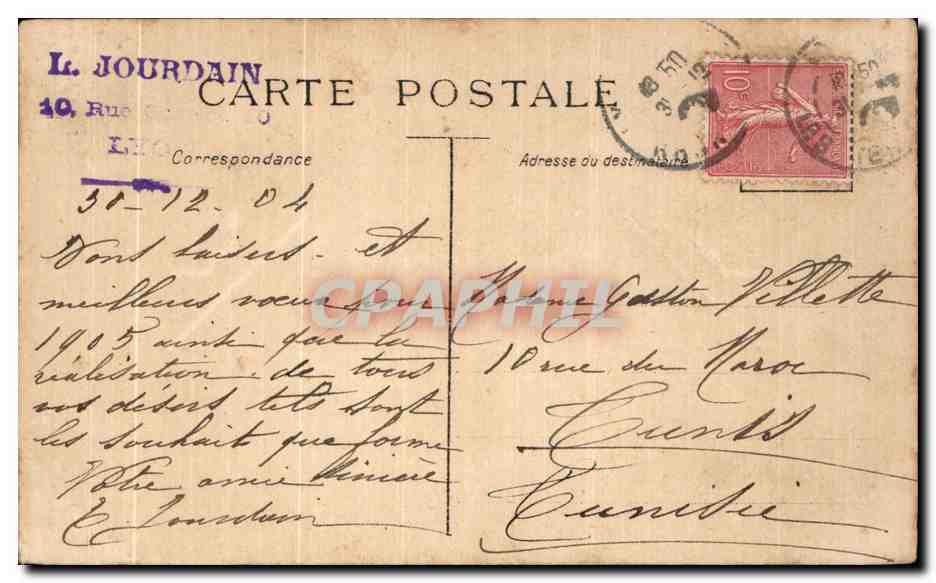 L. JOURDAIN
10, Rue
LYO
CARTE POSTALE
Correspondance
Adresse ou destinataire
10c
31-12-04
Bons baisers et
meilleurs vœux pour
1905 ainsi que la
réalisation de tous
vos désirs tels sont
les souhaits que forme
Votre amie sincère
Jourdain
Madame Gaston Villette
10 rue du Maroc
Tunis
Tunisie
CPAPHIL